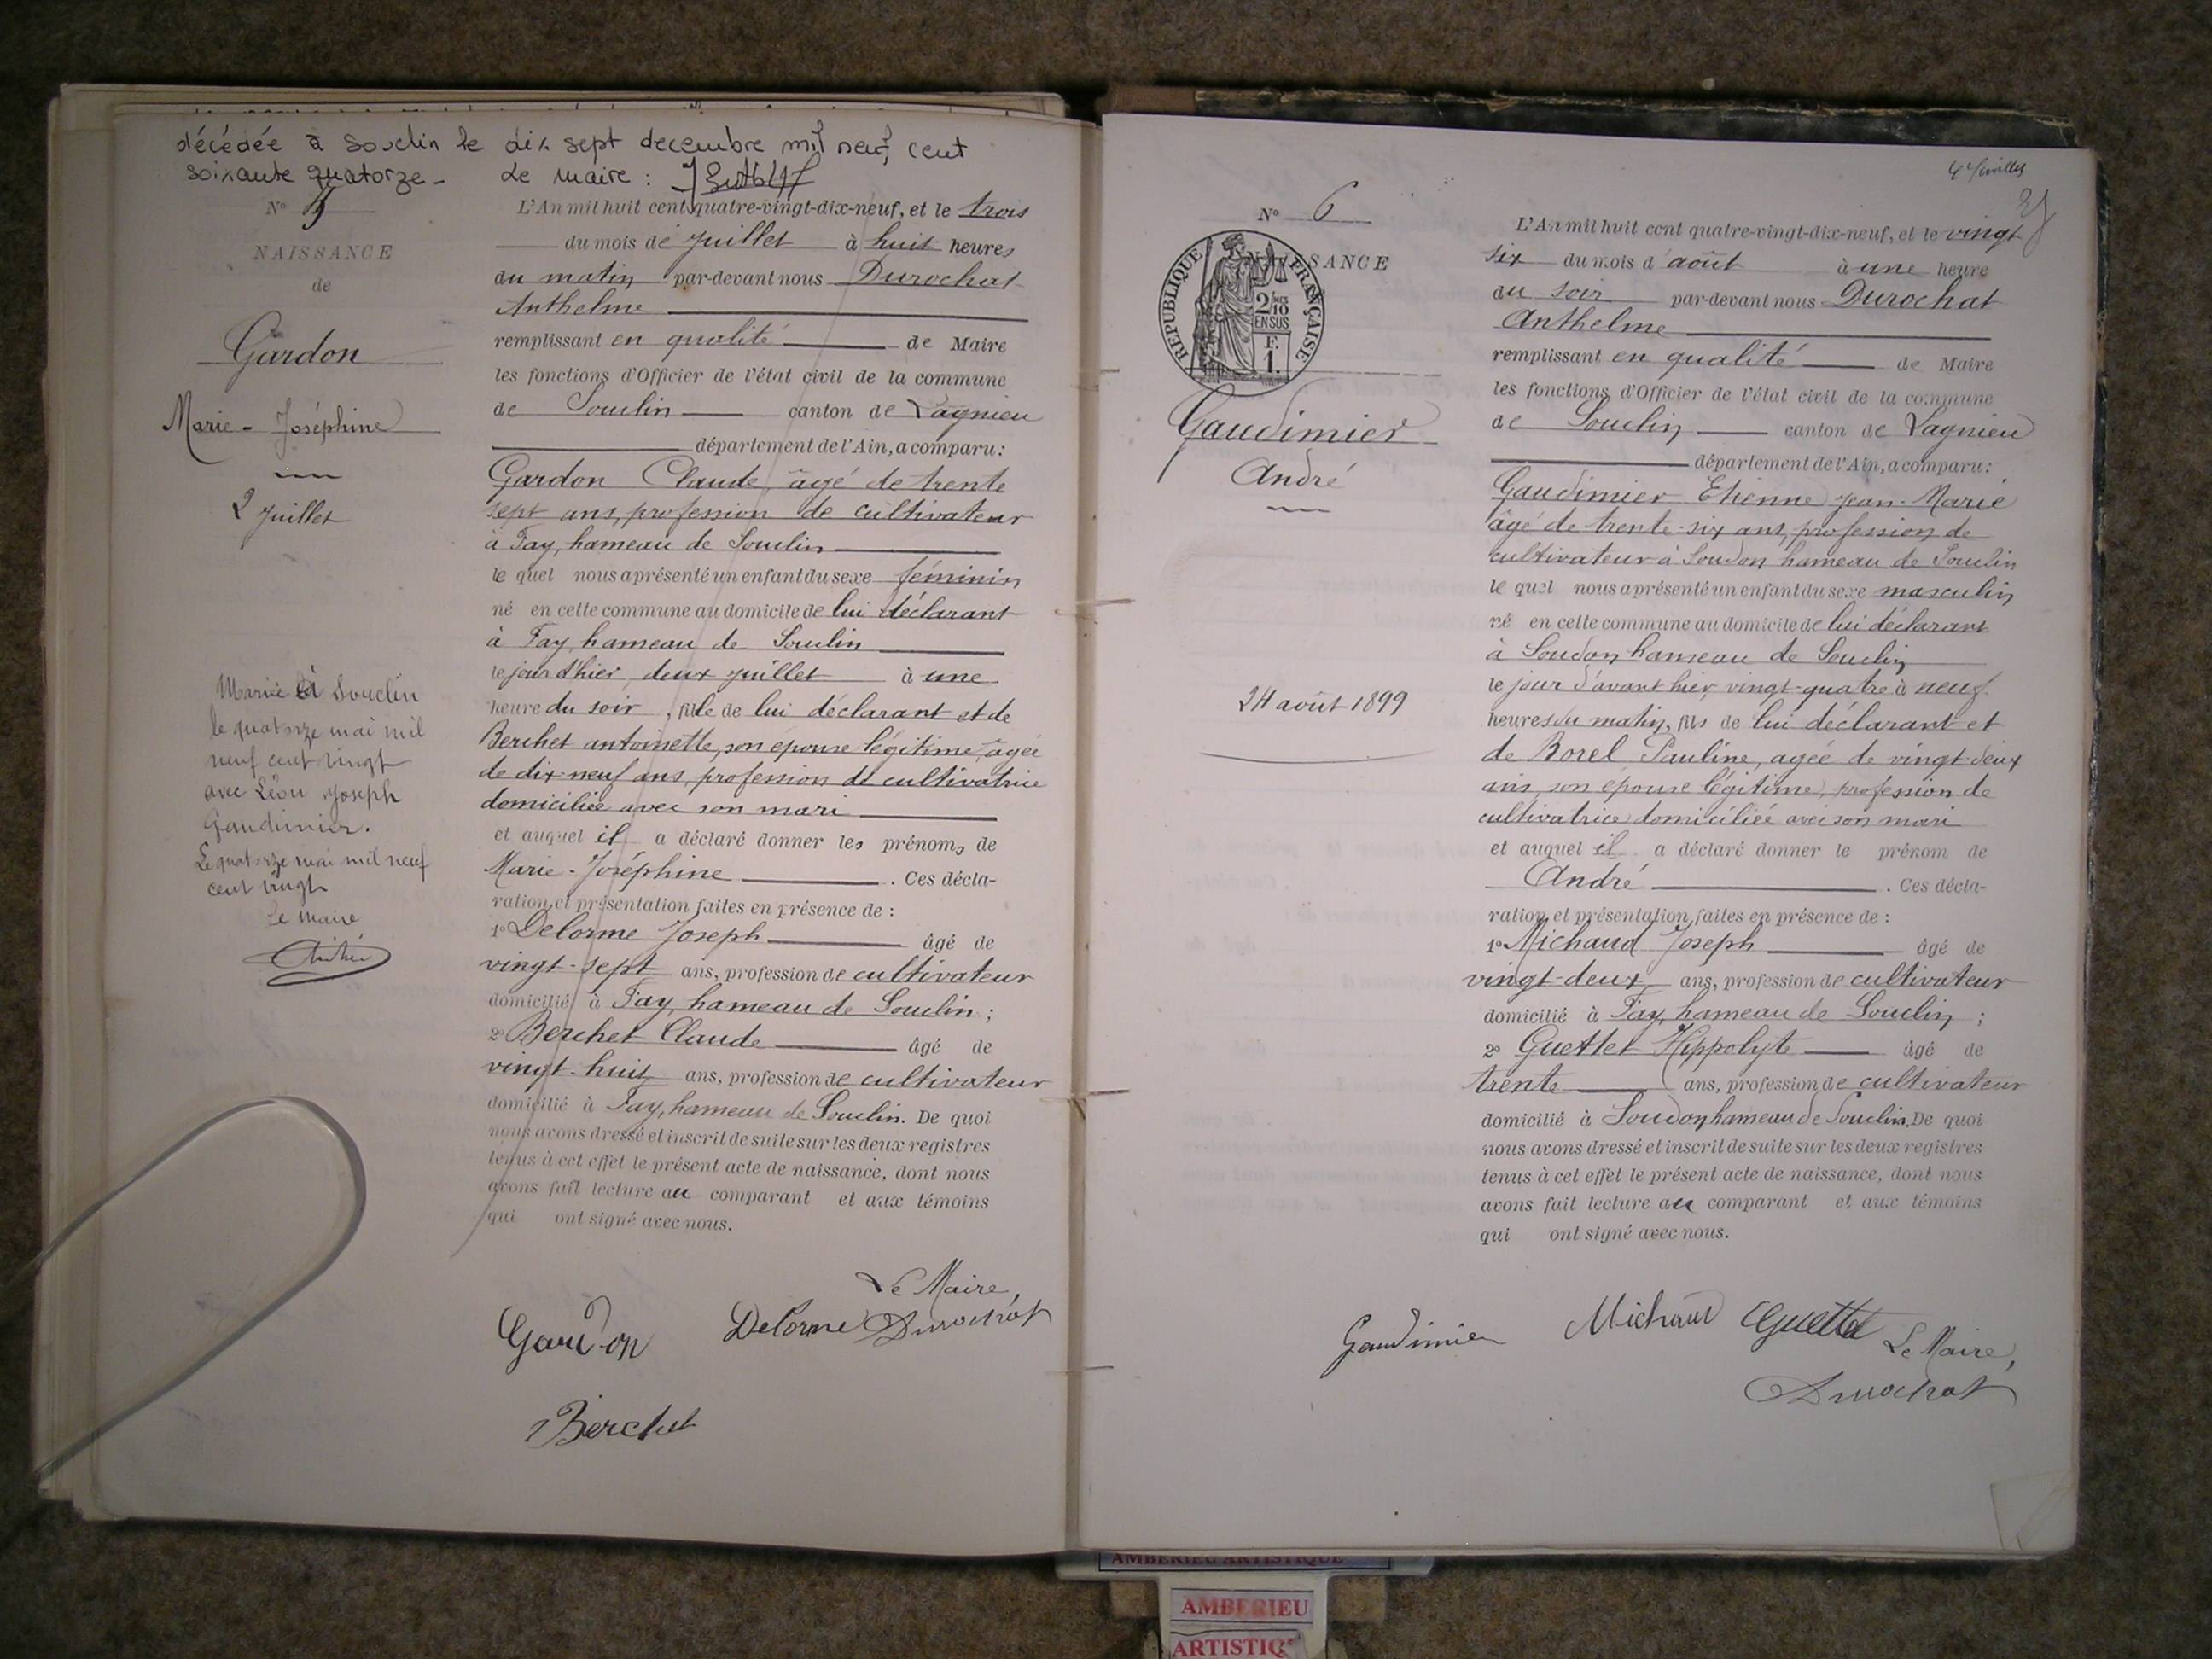 décédée à Souclin le dix sept decembre mil neuf cent
soixante quatorze - Le maire :
N° 5
NAISSANCE
de
Gardon
Marie - Joséphine
2 Juillet
Mariée à Souclin
le quatorze mai mil
neuf cent vingt
avec Léon Joseph
Gaudimier.
Le quatorze mai mil neuf
cent vingt
Le Maire
L'An mil huit cent quatre-vingt-dix-neuf, et le trois
du mois de Juillet à huit heures
du matin par-devant nous Durochat
Anthelme
remplissant en qualité de Maire
les fonctions d'Officier de l'état civil de la commune
de Souclin canton de Lagnieu
département de l'Ain, a comparu :
Gardon Claude, âgé de trente
sept ans, profession de cultivateur
à Fay, hameau de Souclin
le quel nous a présenté un enfant du sexe féminin
né en cette commune au domicile de lui déclarant
à Fay, hameau de Souclin
le jour d'hier, deux juillet à une
heure du soir, fille de lui déclarant et de
Berchet antoinette, son épouse légitime, agée
de dix-neuf ans, profession de cultivatrice
domiciliée avec son mari
et auquel il a déclaré donner les prénoms de
Marie - Joséphine . Ces décla-
ration et présentation faites en présence de :
1° Delorme Joseph âgé de
vingt-sept ans, profession de cultivateur
domicilié à Fay, hameau de Souclin ;
2° Berchet Claude âgé de
vingt-huit ans, profession de cultivateur
domicilié à Fay, hameau de Souclin. De quoi
nous avons dressé et inscrit de suite sur les deux registres
tenus à cet effet le présent acte de naissance, dont nous
avons fait lecture au comparant et aux témoins
qui ont signé avec nous.
Le Maire,
Gardon Delorme Durochat
Berchet
4e feuillet
N° 6
NAISSANCE
REPUBLIQUE FRANÇAISE
2/10mes
EN SUS
F.
1.
Gaudimier
André
24 août 1899
L'An mil huit cent quatre-vingt-dix-neuf, et le vingt
six du mois d'août à une heure
du soir par-devant nous Durochat
Anthelme
remplissant en qualité de Maire
les fonctions d'Officier de l'état civil de la commune
de Souclin canton de Lagnieu
département de l'Ain, a comparu :
Gaudimier Etienne Jean-Marie
âgé de trente-six ans, profession de
cultivateur à Soudon hameau de Souclin
le quel nous a présenté un enfant du sexe masculin
né en cette commune au domicile de lui déclarant
à Soudon hameau de Souclin
le jour d'avant hier, vingt-quatre à neuf
heures du matin, fils de lui déclarant et
de Borel Pauline, agée de vingt-deux
ans, son épouse légitime, profession de
cultivatrice domiciliée avec son mari
et auquel il a déclaré donner le prénom de
André . Ces décla-
ration et présentation faites en présence de :
1° Michaud Joseph âgé de
vingt-deux ans, profession de cultivateur
domicilié à Fay, hameau de Souclin ;
2° Guettet Hippolyte âgé de
trente ans, profession de cultivateur
domicilié à Soudon hameau de Souclin. De quoi
nous avons dressé et inscrit de suite sur les deux registres
tenus à cet effet le présent acte de naissance, dont nous
avons fait lecture au comparant et aux témoins
qui ont signé avec nous.
Gaudimier Michaud Guettet Le Maire,
Durochat
AMBERIEU ARTISTIQUE
AMBERIEU
ARTISTIQUE